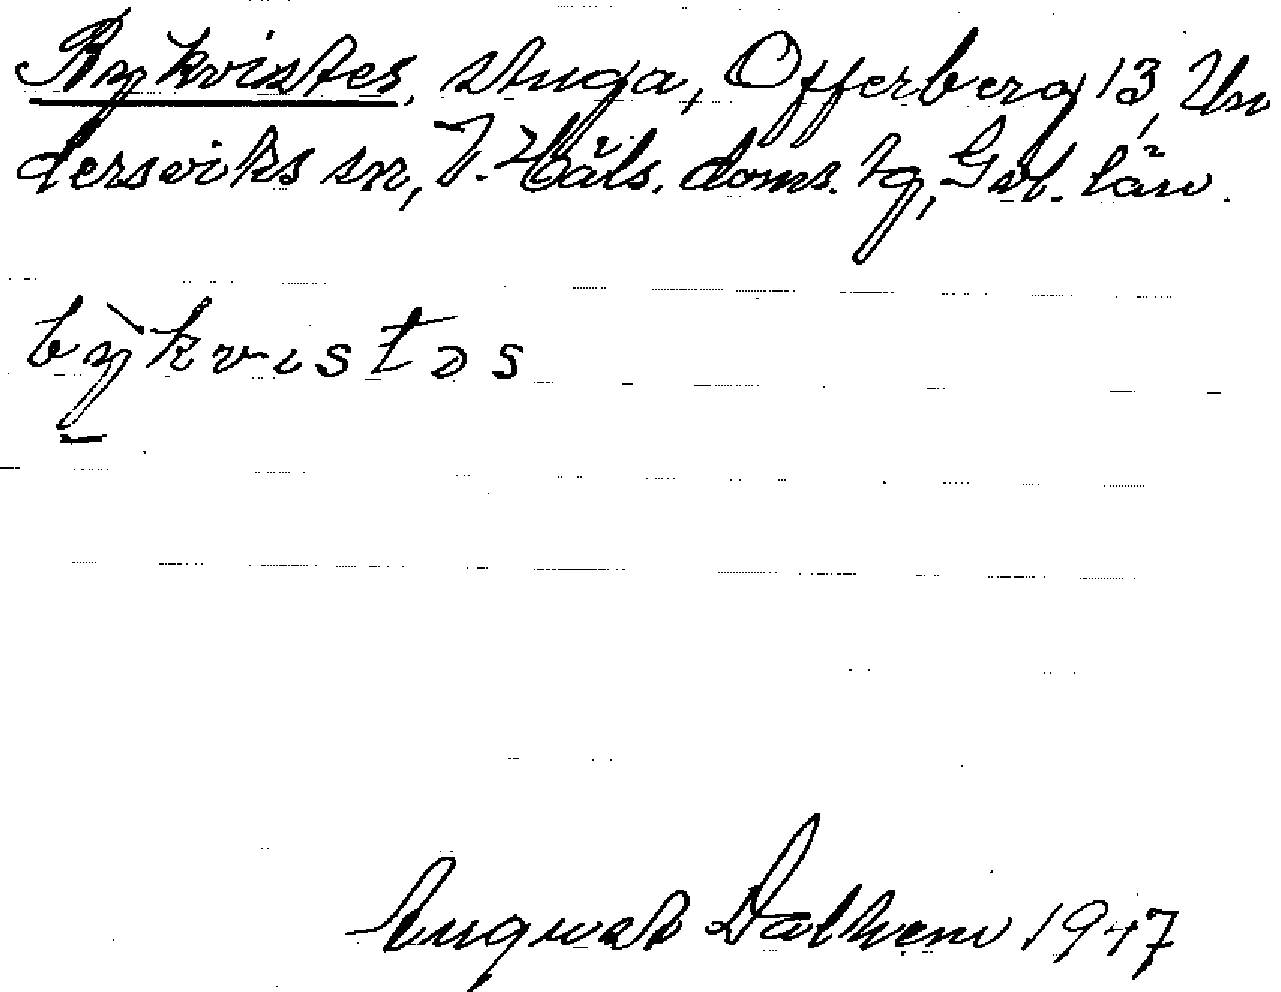 Bykvistes, stuga, Offerberg 13, Un
dersviks sn, V. Häls. doms. tg, Gvl. län.
bỳkvistəs
August Dalhem 1947